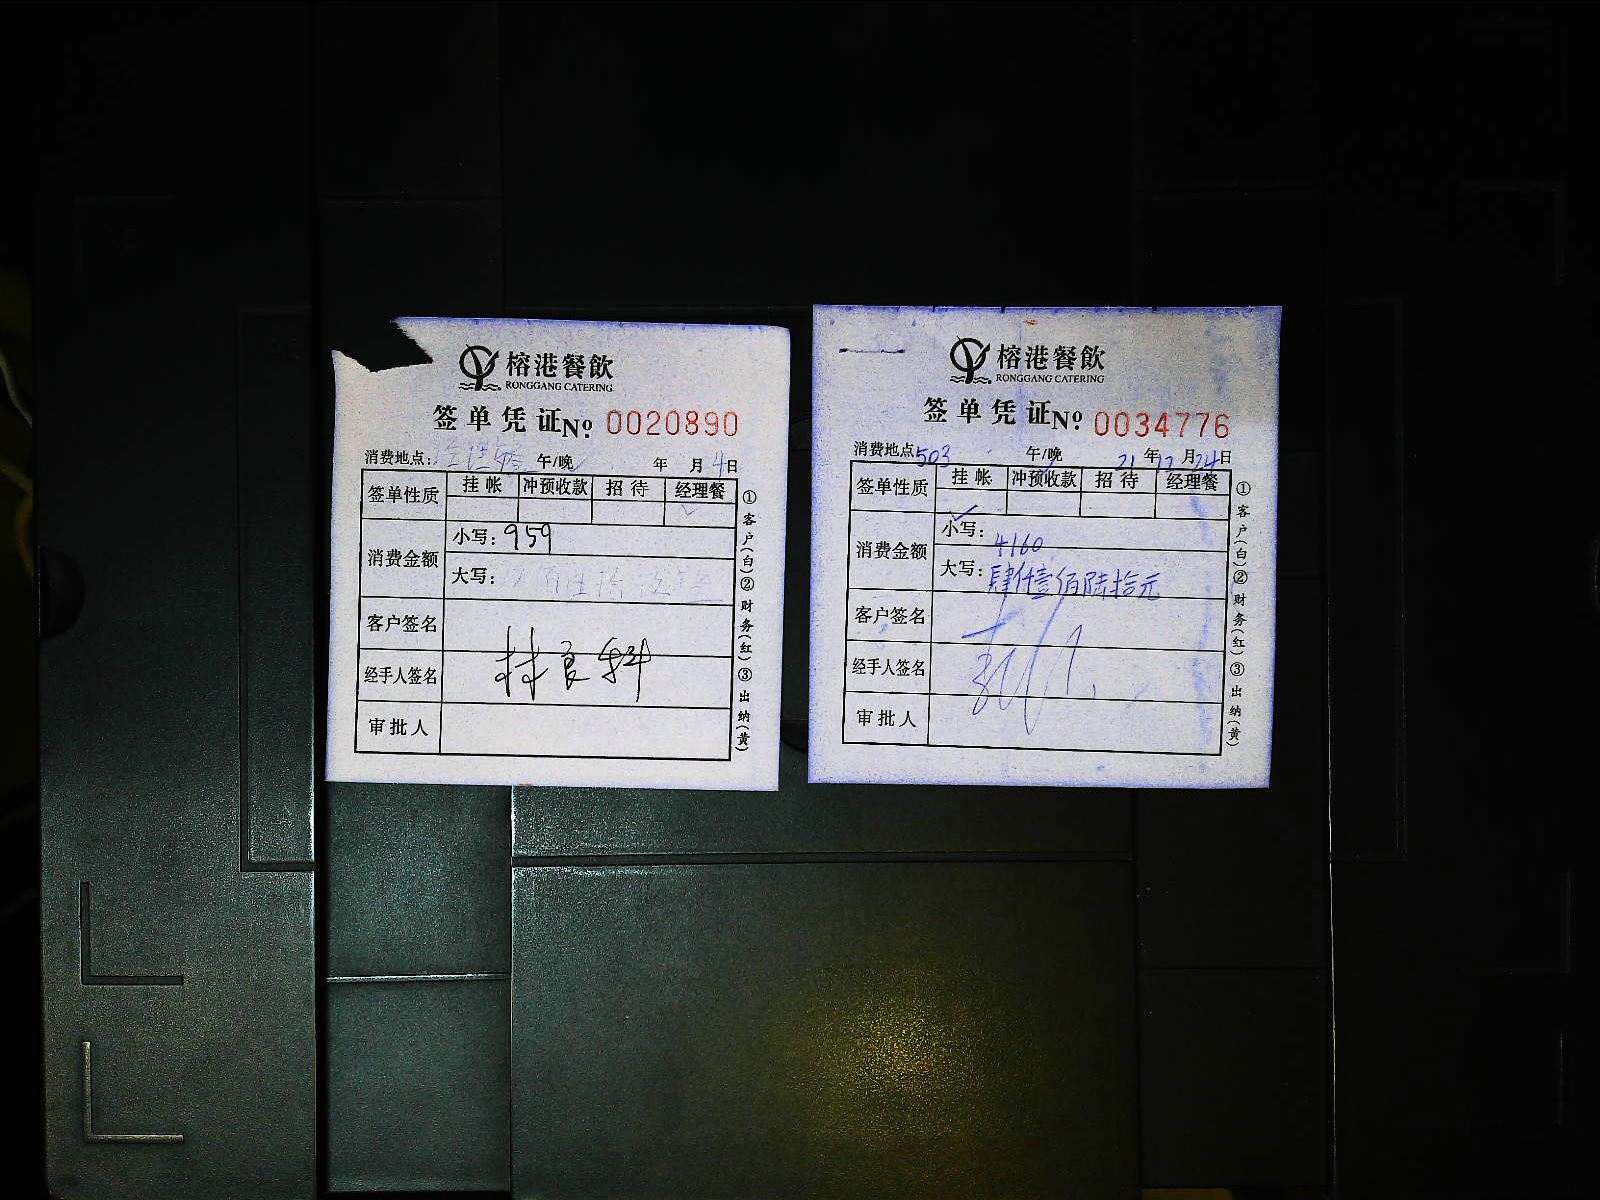 榕港餐飲
RONGGANG CATERING
签单凭证 No: 0020890
消费地点: 午/晚 年 月4日
签单性质 挂帐 冲预收款 招待 经理餐
消费金额 小写: 959
大写:
客户签名
经手人签名 林良科
审批人
①客户(白)②财务(红)③出纳(黄)
榕港餐飲
RONGGANG CATERING
签单凭证 No: 0034776
消费地点: 503 午/晚 21年12月24日
签单性质 挂帐 冲预收款 招待 经理餐
消费金额 小写: 4160
大写: 肆仟壹佰陆拾元
客户签名
经手人签名
审批人
①客户(白)②财务(红)③出纳(黄)